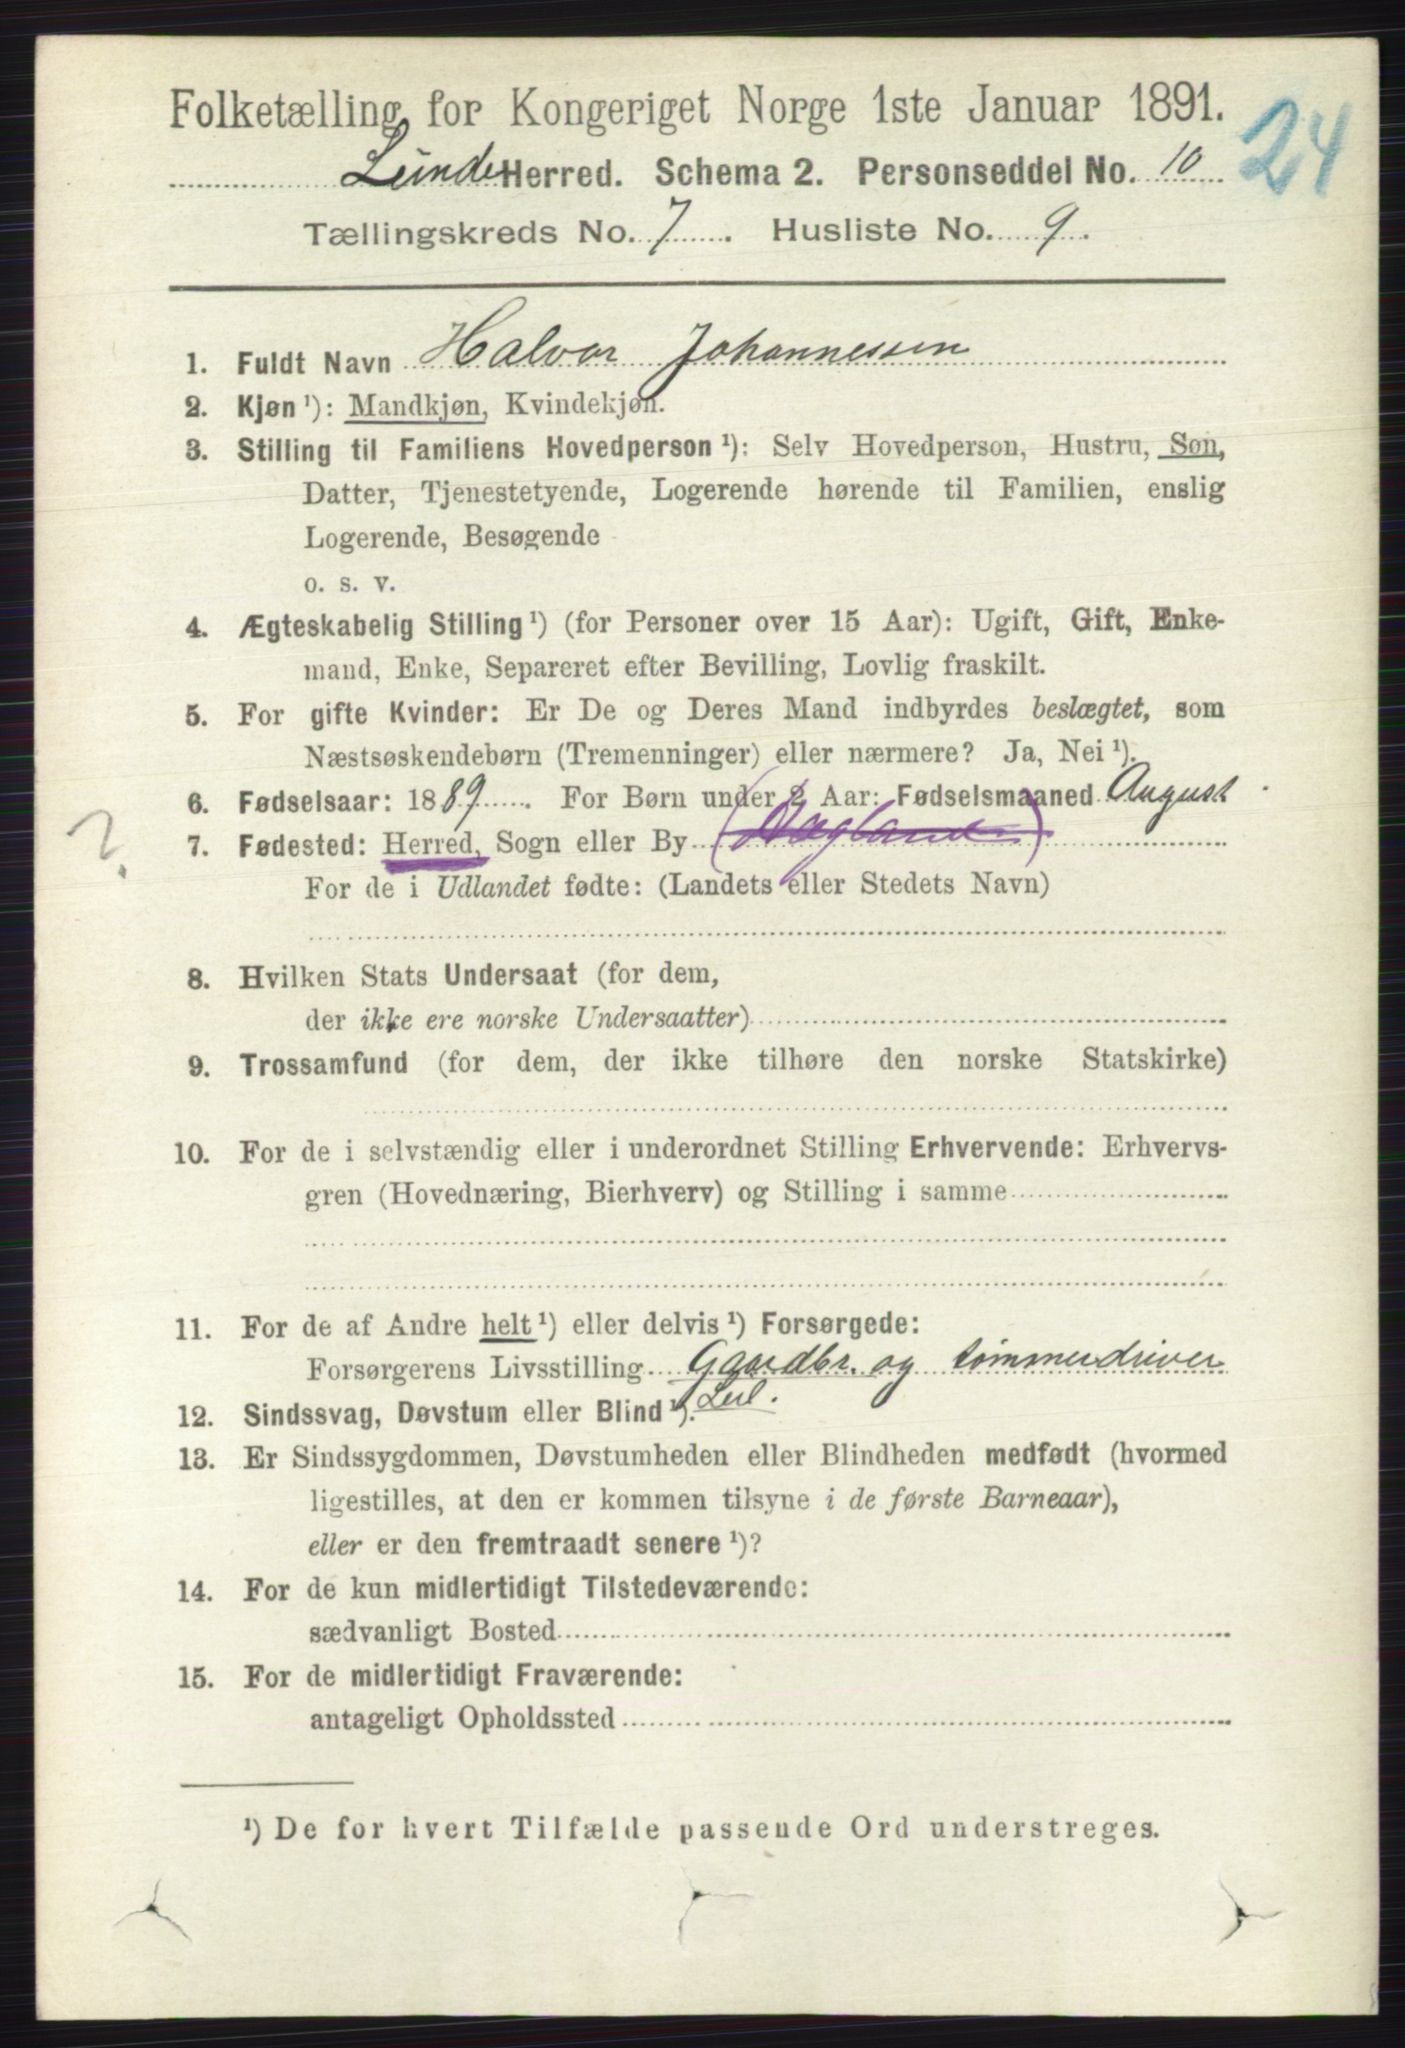 Folketælling for Kongeriget Norge 1ste Januar 1891.
24
Lunde Herred. Schema 2. Personseddel No. 10
Tællingskreds No. 7. Husliste No. 9.
1. Fuldt Navn Halvor Johannessen
2. Kjøn ¹): Mandkjøn, Kvindekjøn.
3. Stilling til Familiens Hovedperson ¹): Selv Hovedperson, Hustru, Søn,
Datter, Tjenestetyende, Logerende hørende til Familien, enslig
Logerende, Besøgende
o. s. v.
4. Ægteskabelig Stilling ¹) (for Personer over 15 Aar): Ugift, Gift, Enke-
mand, Enke, Separeret efter Bevilling, Lovlig fraskilt.
5. For gifte Kvinder: Er De og Deres Mand indbyrdes beslægtet, som
Næstsøskendebørn (Tremenninger) eller nærmere? Ja, Nei ¹).
6. Fødselsaar: 1889. For Børn under 2 Aar: Fødselsmaaned August
?
7. Fødested: Herred, Sogn eller By
For de i Udlandet fødte: (Landets eller Stedets Navn)
8. Hvilken Stats Undersaat (for dem,
der ikke ere norske Undersaatter)
9. Trossamfund (for dem, der ikke tilhøre den norske Statskirke)
10. For de i selvstændig eller i underordnet Stilling Erhvervende: Erhvervs-
gren (Hovednæring, Bierhverv) og Stilling i samme
11. For de af Andre helt ¹) eller delvis ¹) Forsørgede:
Forsørgerens Livsstilling Gaardbr. og tømmerdriver
12. Sindssvag, Døvstum eller Blind ¹).
13. Er Sindssygdommen, Døvstumheden eller Blindheden medfødt (hvormed
ligestilles, at den er kommen tilsyne i de første Barneaar),
eller er den fremtraadt senere ¹)?
14. For de kun midlertidigt Tilstedeværende:
sædvanligt Bosted
15. For de midlertidigt Fraværende:
antageligt Opholdssted
¹) De for hvert Tilfælde passende Ord understreges.